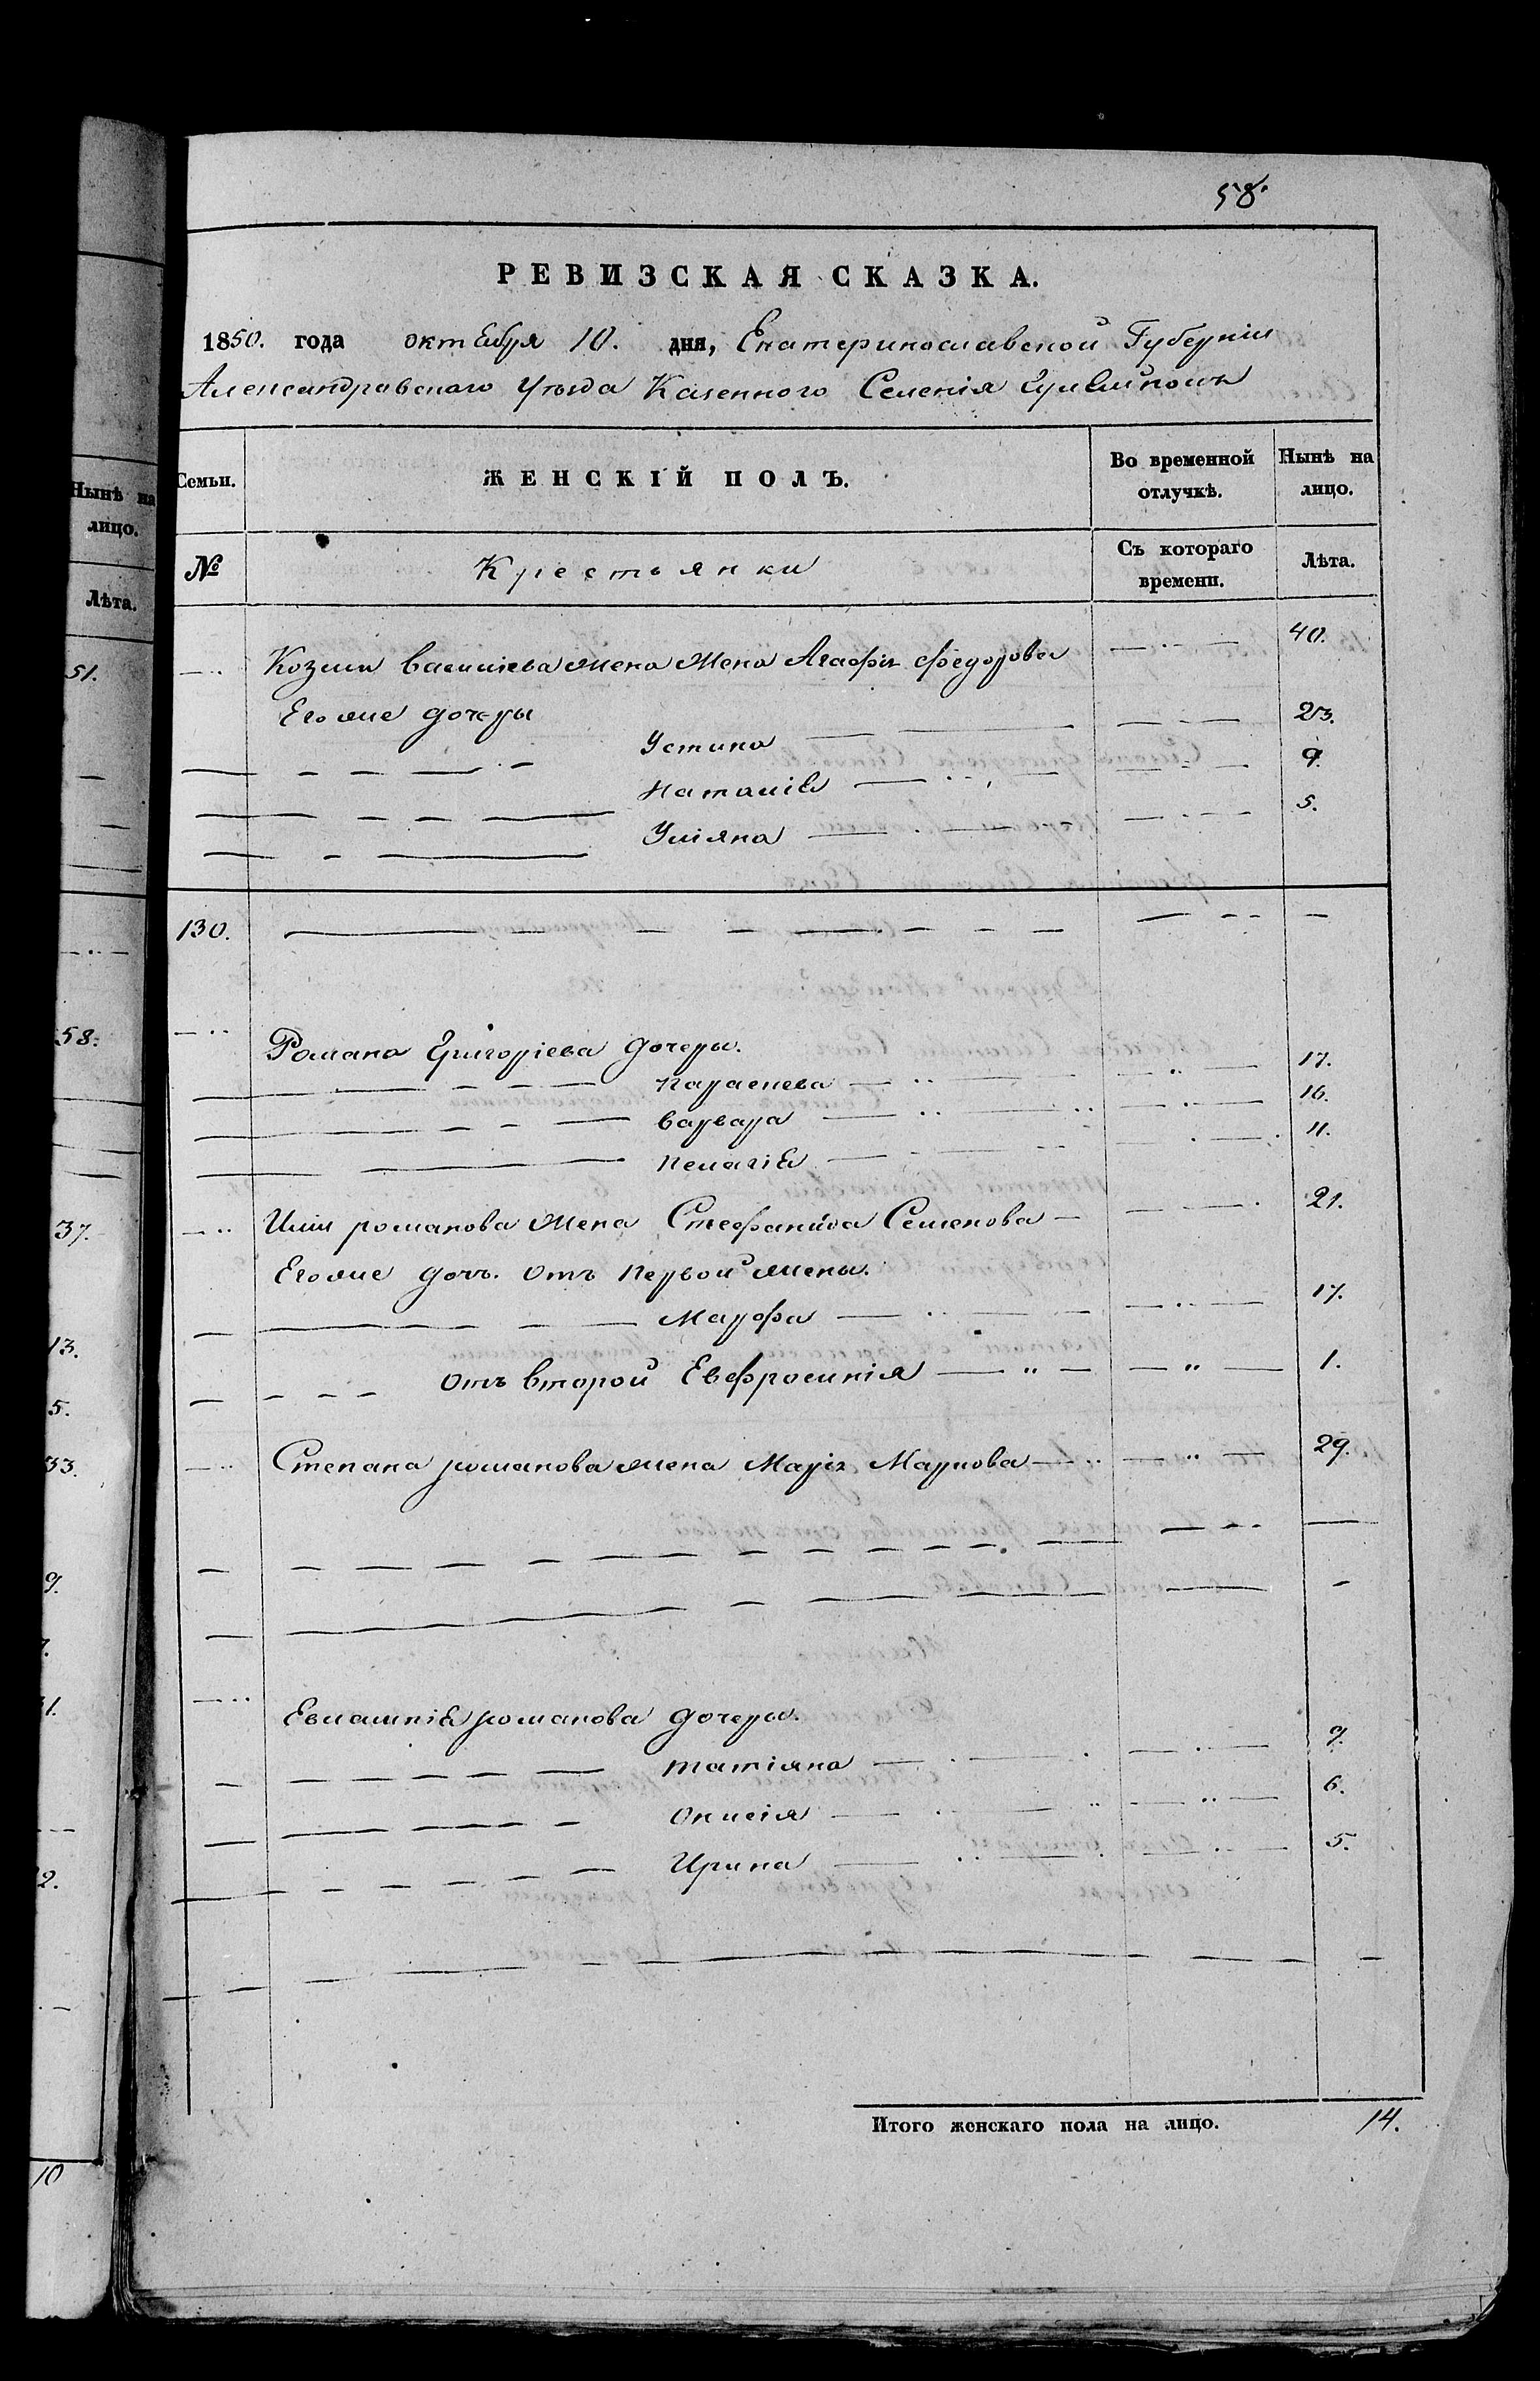 58.
РЕВИЗСКАЯ СКАЗКА.
1850. года октября 10. дня, Екатеринославской Губерніи
Александровскаго Уѣзда Казенного Селенія Гуляйполя
Семьи. ЖЕНСКІЙ ПОЛЪ. Во временной отлучкѣ. Нынѣ на лицо.
№ Крестьянки Съ котораго времени. Лѣта.
Козми Васильева жена Агафія Федорова 40.
Егоже дочеры
Устина 23.
Наталія 9.
Уліяна 5.
130.
Романа Григоріева дочеры.
Параскева 17.
Варвара 16.
Пелагія 11.
Иліи Романова жена Стефанида Семенова 21.
Егоже дочь. Отъ Первой жены.
Марфа 17.
Отъ второй Евфросинія 1.
Степана Романова жена Марія Маркова 29.
Евлампія Романова дочеры.
Татіяна 9.
Оксиія 6.
Ирина 5.
Итого женскаго пола на лицо. 14.
Нынѣ на
лицо.
Лѣта.
51.
58.
37.
13.
5.
33.
9.
10